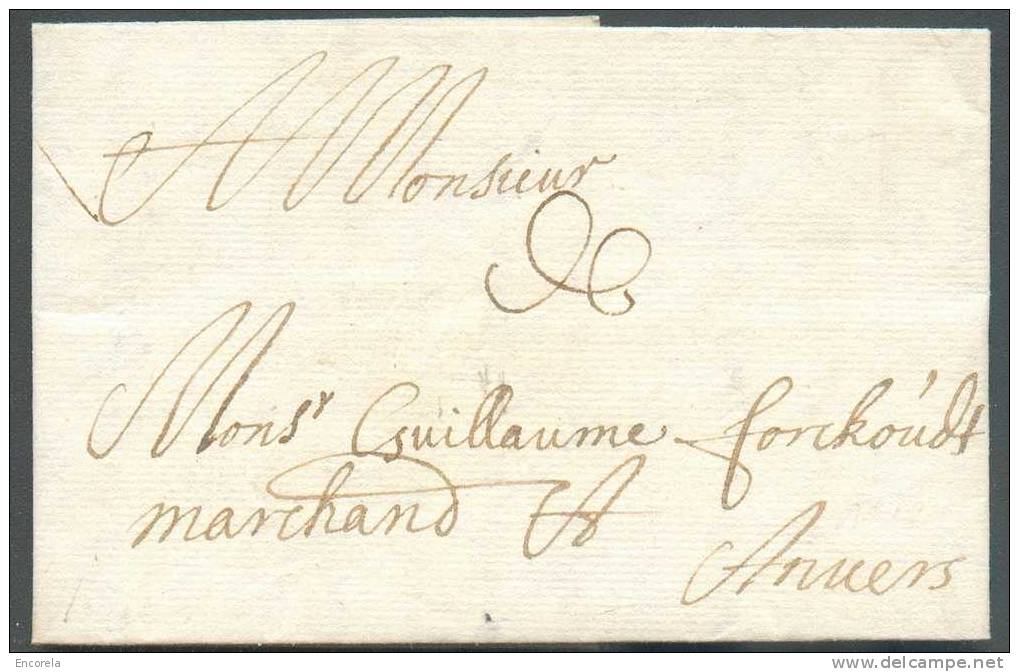 A Monsieur
Mons.r Guillaume forckoúdt
marchand A
Anvers
Encorela
www.delcampe.net